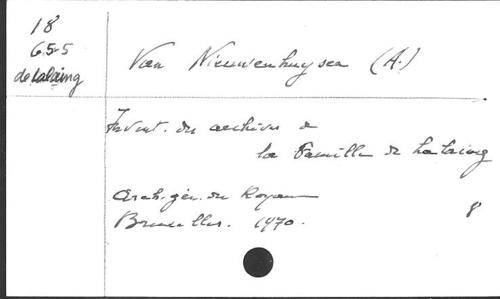 18
655
de Lalaing
Van Nieuwenhuysen (A.)
Invent. des archives de
la famille de Lalaing
Arch. gén. du Royaume
8
Bruxelles. 1970.